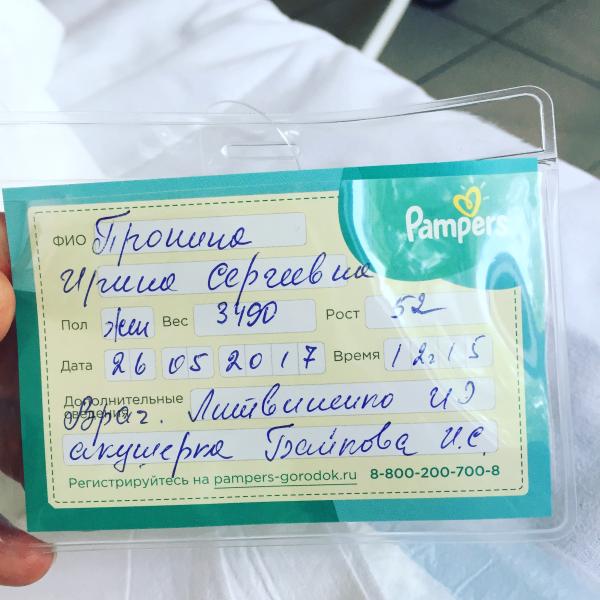 Pampers
ФИО Пронина
Ирина Сергеевна
Пол жен Вес 3490 Рост 52
Дата 26 05 2017 Время 12 15
Дополнительные сведения Врач. Литвиненко И Э
акушерка Баикова И.С.
Регистрируйтесь на pampers-gorodok.ru 8-800-200-700-8